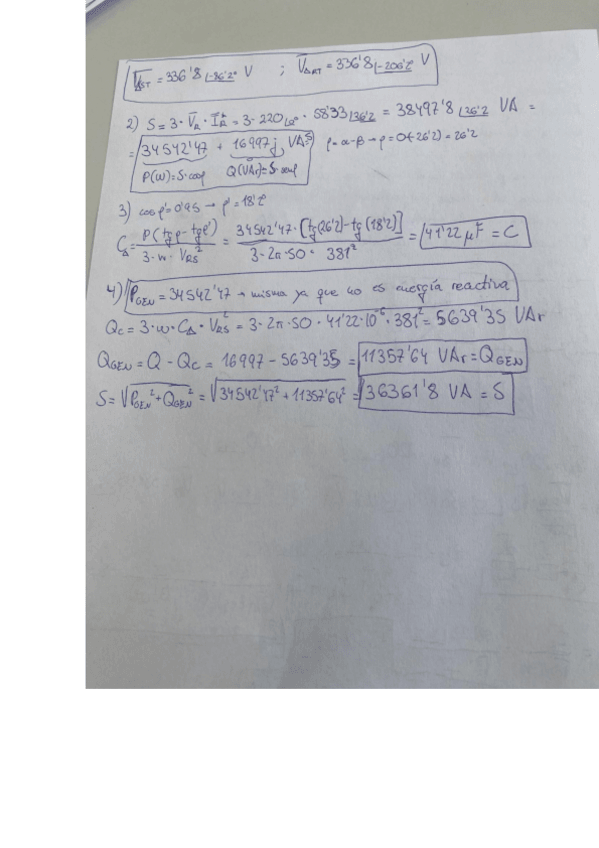 V̄_ΔST = 336'8 ∠-86'2º V ; V̄_ΔRT = 336'8 ∠-206'2º V
2) S = 3·V̄_R·Ī_R* = 3·220∠0º · 58'33∠26'2 = 38497'8 ∠26'2 VA =
= 34542'47 + 16997j VA=S φ=α-β → φ=0-(-26'2)=26'2
P(W)=S·cosφ Q(VAr)=S·senφ
3) cosφ'=0'95 → φ'=18'2º
C_Δ = P(tgφ - tgφ') / 3·w·V_RS² = 34542'47·[tg(26'2)-tg(18'2)] / 3·2π·50·381² = 41'22 μF = C
4) P_GEN = 34542'47 → misma ya que no es energía reactiva
Q_C = 3·w·C_Δ·V_RS² = 3·2π·50·41'22·10⁻⁶·381² = 5639'35 VAr
Q_GEN = Q - Q_C = 16997 - 5639'35 = 11357'64 VAr = Q_GEN
S = √P_GEN² + Q_GEN² = √34542'47² + 11357'64² = 36361'8 VA = S